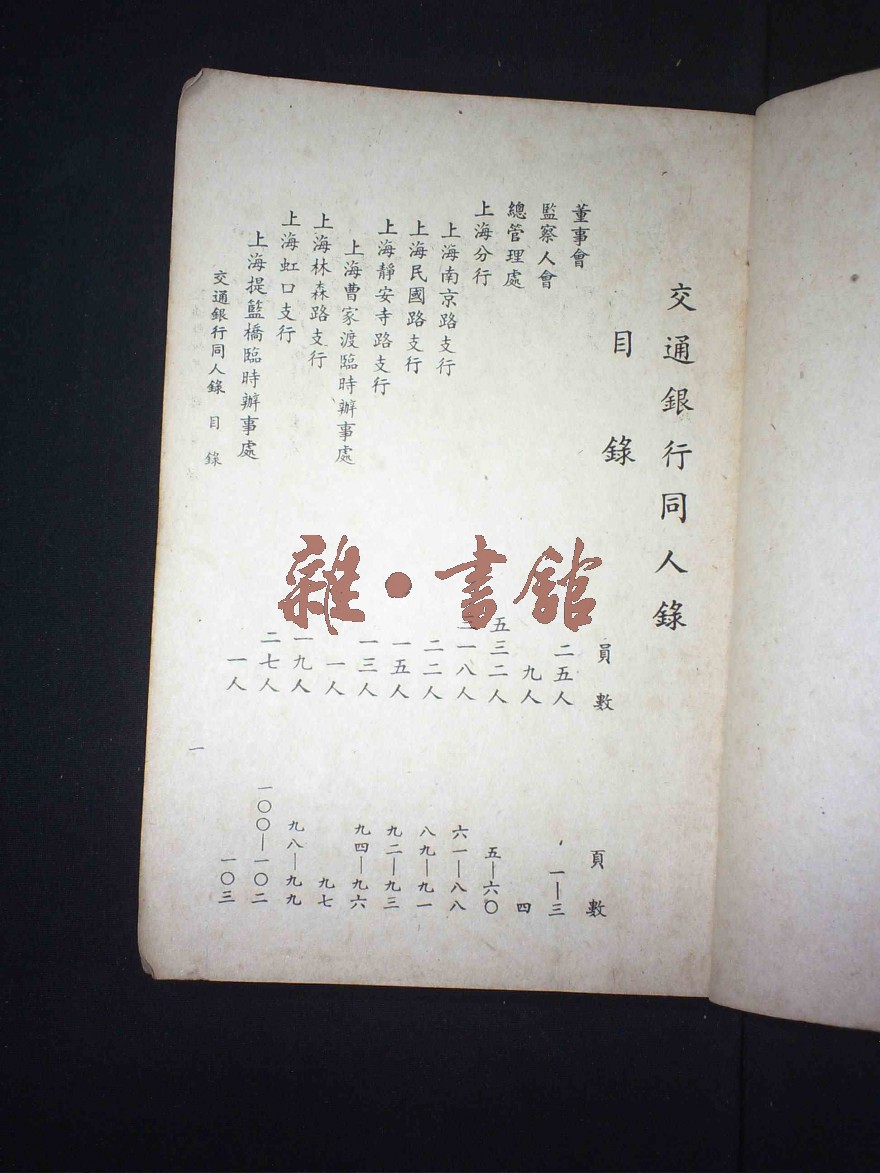 交通銀行同人錄
目錄
員數 頁數
董事會 二五人 一—三
監察人會 九人 四
總管理處 五三二人 五—六〇
上海分行 三一八人 六一—八八
上海南京路支行 二二人 八九—九一
上海民國路支行 一五人 九二—九三
上海靜安寺路支行 一三人 九四—九六
上海曹家渡臨時辦事處 一人 九七
上海林森路支行 一九人 九八—九九
上海虹口支行 二七人 一〇〇—一〇二
上海提籃橋臨時辦事處 一人 一〇三
交通銀行同人錄 目錄 一
雜·書館